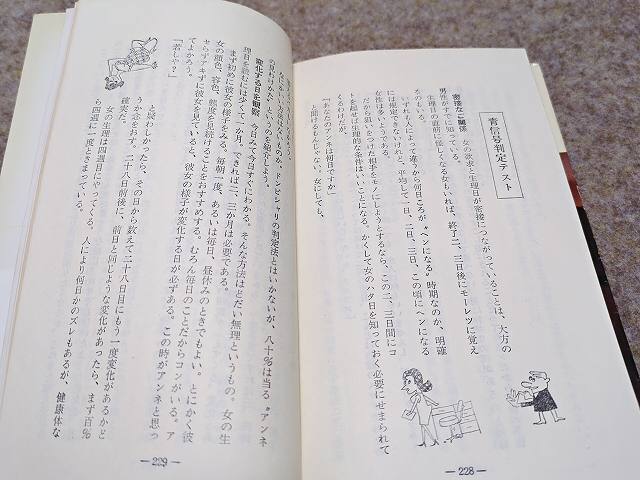 青信号判定テスト
密接なご関係　女の欲求と生理日が密接につながっていることは、大方の
男性がすでに知っている。
生理日の直前に怪しくなる女もいれば、終了二、三日後にモーレツに覚え
るのもいる。
いずれも人によって違うから何日ごろが〝ヘンになる〟時期なのか、明確
には規定できないけれど、平均して一日、二日、三日、この頃にヘンになる
女性は多いようである。
だから狙いをつけた相手をモノにしようとするなら、この二、三日間にコ
トを起せば生理的な条件はいいことになる。かくして女のハタ日を知っておく必要にせまられて
くるわけだが、
「あなたのアンネは何日ですか」
と聞けるもんじゃない。女にしても、
―228―
ドンピシャリの判定法とはいかないが、八十％は当る〝アンネ
の見わけかた〟というのを紹介しよう。
変化する日を観察　今日みて今日すぐにわかる。そんな方法はどだい無理というもの。女の生
理日を読むには少くて一か月、できれば二、三か月は必要である。
まず初めに彼女の様子をみる。毎朝一度、あるいは毎日、昼休みのときでもよい。とにかく彼
女の顔色、容色、態度を見届けることをおすすめする。むろん毎日のことだからコンがいる。ア
セらずアキずに彼女を見ていると、彼女の様子が変化する日が必ずある。この時がアンネと思っ
てよかろう。
「若しや？」
と疑わしかったら、その日から数えて二十八日目にもう一度変化があるかど
うか念をおす。二十八日前後に、前日と同じような変化があったら、まず百％
確実だ。
女の生理は四週目にやってくる。人により何日かのズレもあるが、健康体な
ら四週に一度ときまっている。
―229―